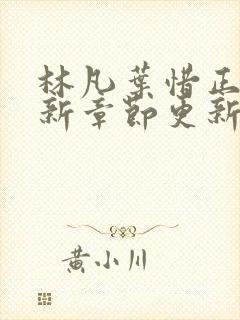 林凡葉惜正
新章節更新
黄小川